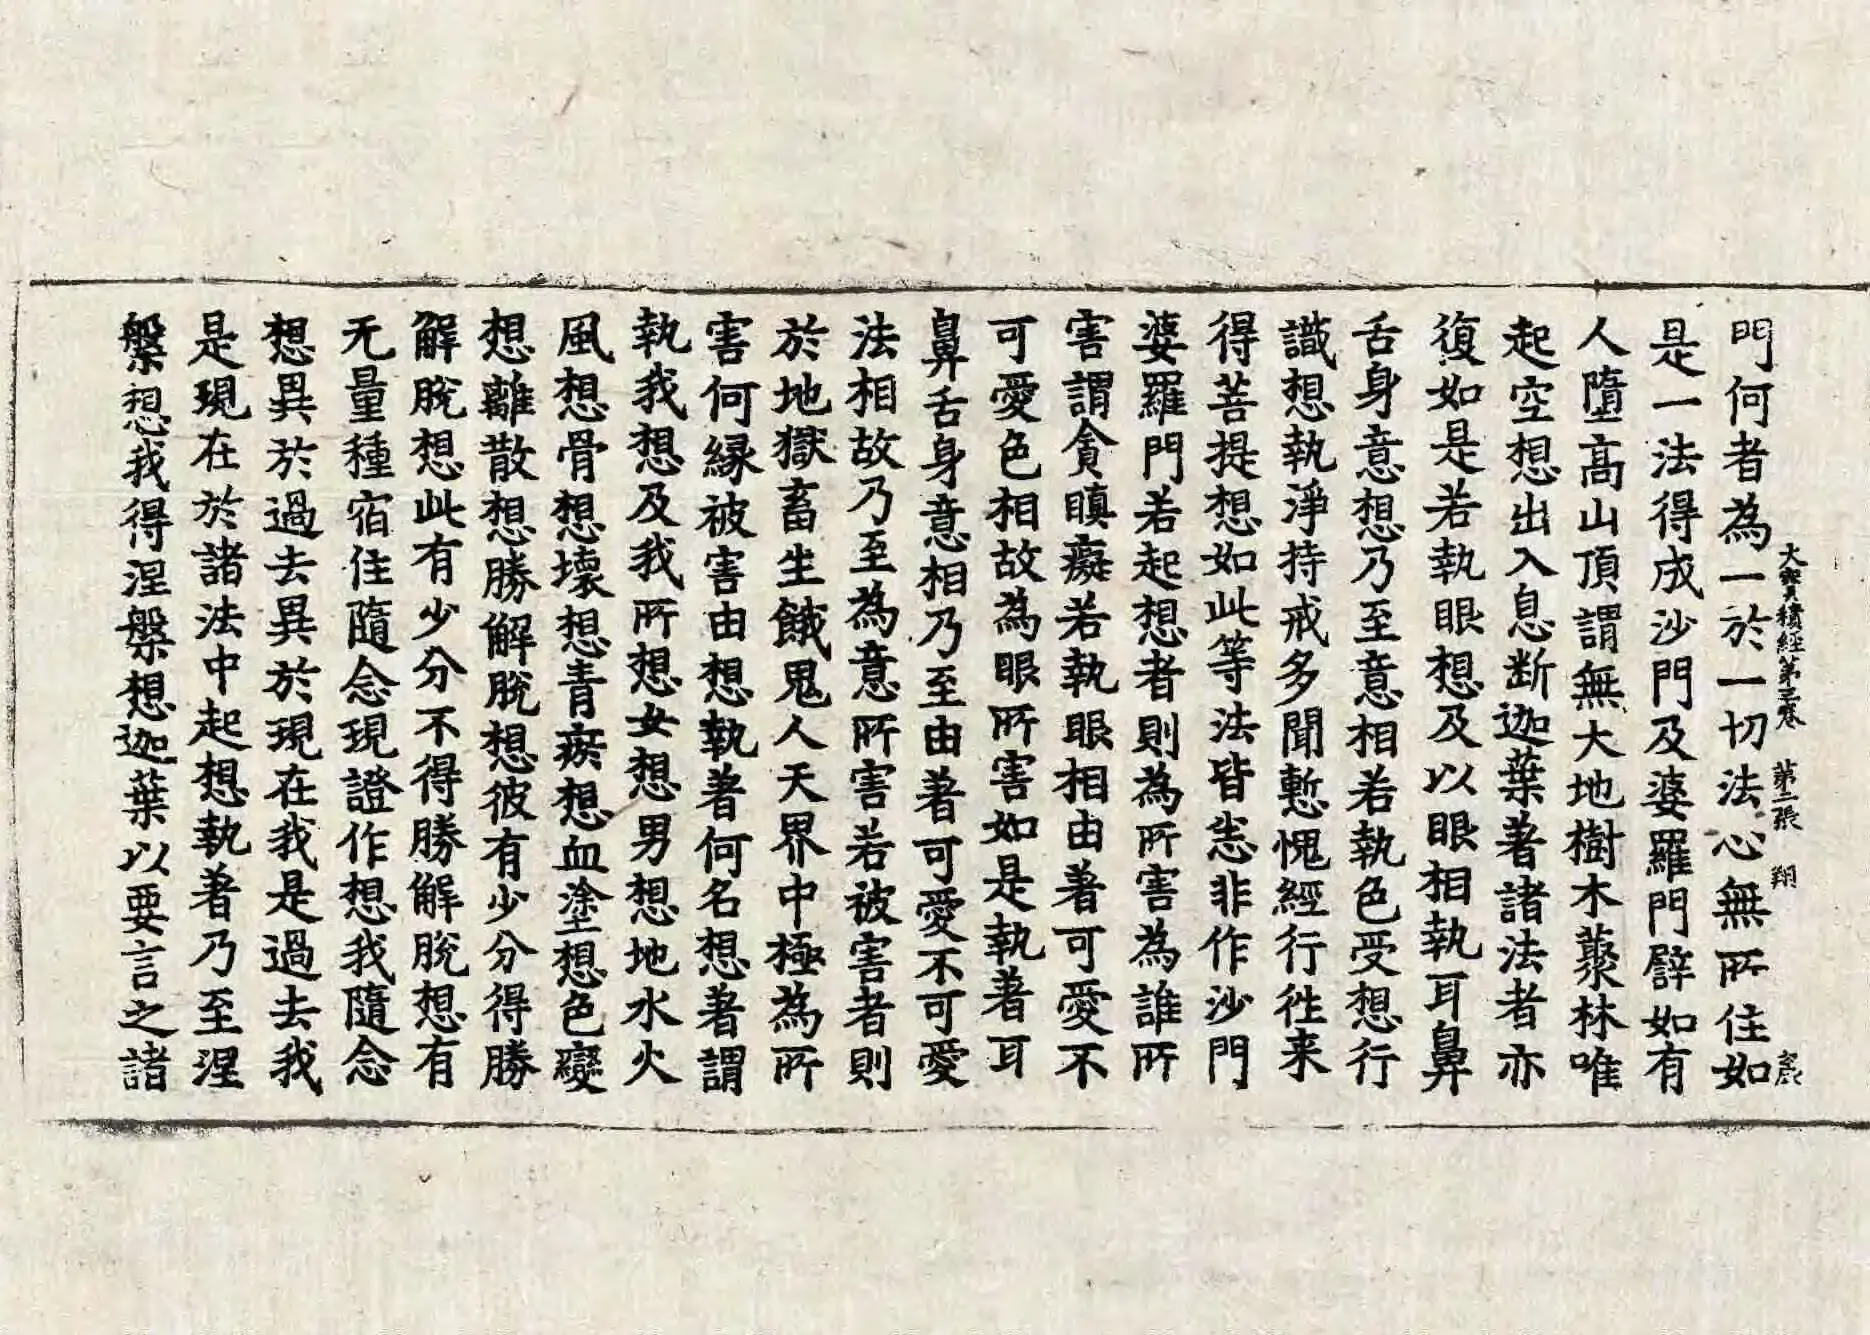 大寶積經第三卷 第二張 翔
門何者為一於一切法心無所住如
是一法得成沙門及婆羅門譬如有
人墮高山頂謂無大地樹木藂林唯
起空想出入息断迦葉著諸法者亦
復如是若執眼想及以眼相執耳鼻
舌身意想乃至意相若執色受想行
識想執淨持戒多聞慙愧經行徃来
得菩提想如此等法皆恙非作沙門
婆羅門若起想者則為所害為誰所
害謂貪瞋癡若執眼相由著可愛不
可愛色相故為眼所害如是執著耳
鼻舌身意相乃至由著可愛不可愛
法相故乃至為意所害若被害者則
於地獄畜生餓鬼人天界中極為所
害何縁被害由想執著何名想著謂
執我想及我所想女想男想地水火
風想骨想壞想青瘀想血塗想色變
想離散想勝解脫想彼有少分得勝
解脫想此有少分不得勝解脫想有
无量種宿住隨念現證作想我隨念
想異於過去異於現在我是過去我
是現在於諸法中起想執著乃至涅
槃想我得涅槃想迦葉以要言之諸